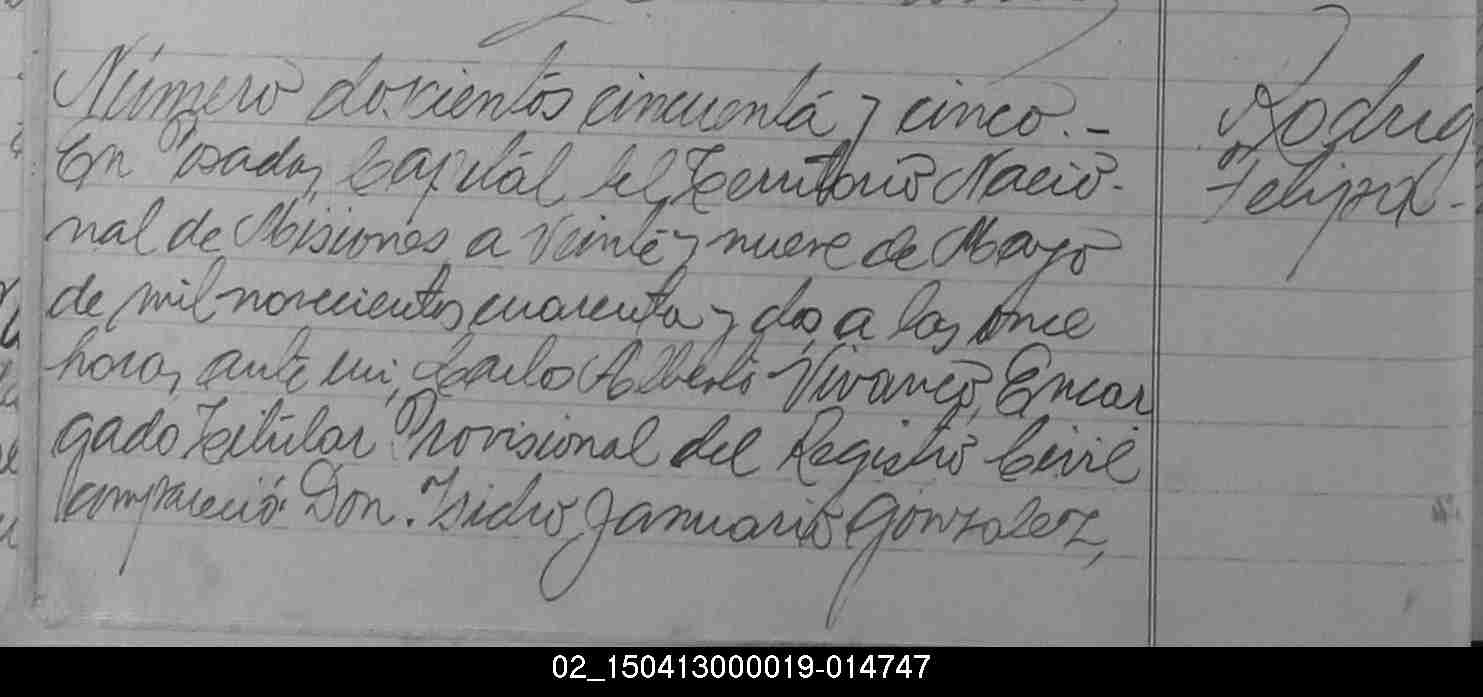 Número doscientos cincuenta y cinco.-
En Posadas, Capital del Territorio Nacio-
nal de Misiones, a veinte y nueve de Mayo
de mil novecientos cuarenta y dos, a las once
horas, ante mi, Carlos Alberto Vivanco, Encar
gado Titular Provisional del Registro Civil
compareció Don. Isidro Januario Gonzalez,
Rodrig
Felipa.-
02_150413000019-014747